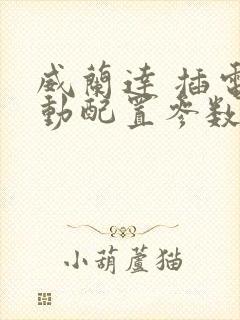 威蘭達 插電
動配置參数
小葫蘆猫